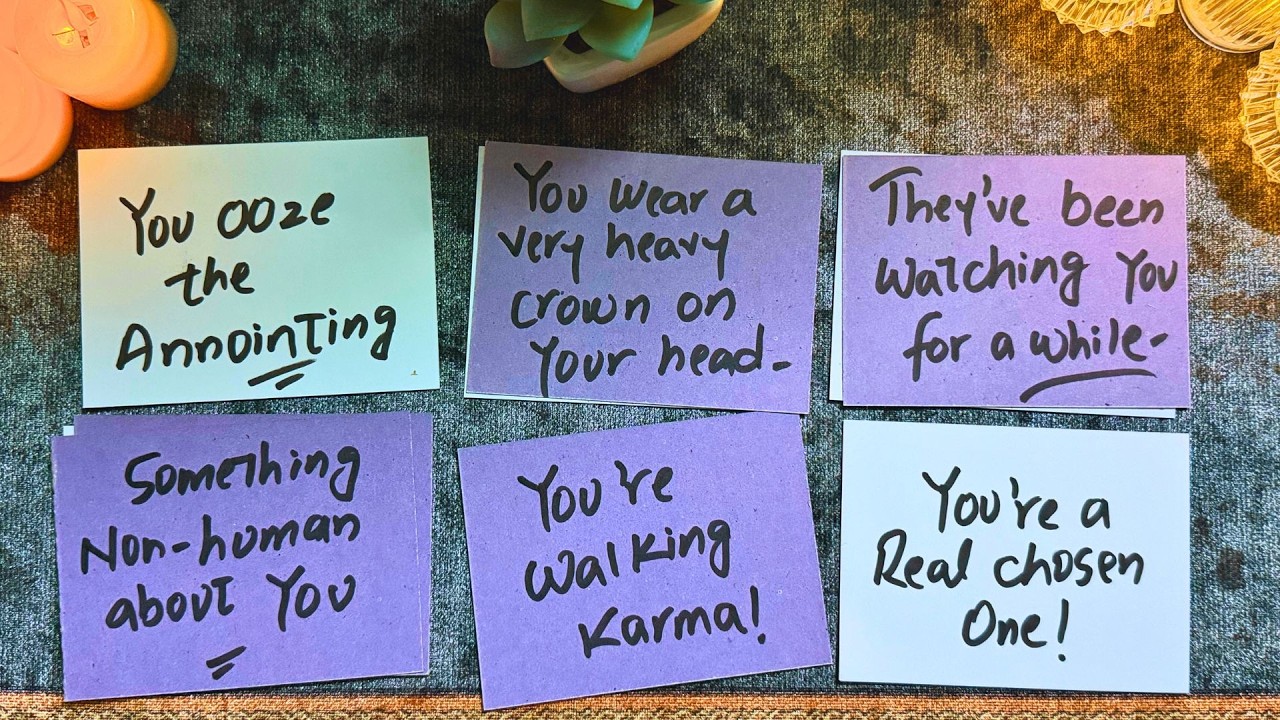 You ooze
the
Annointing
You wear a
very heavy
crown on
your head-
They've been
watching You
for a while-
Something
Non-human
about You
You're
walking
Karma!
You're a
Real chosen
One!